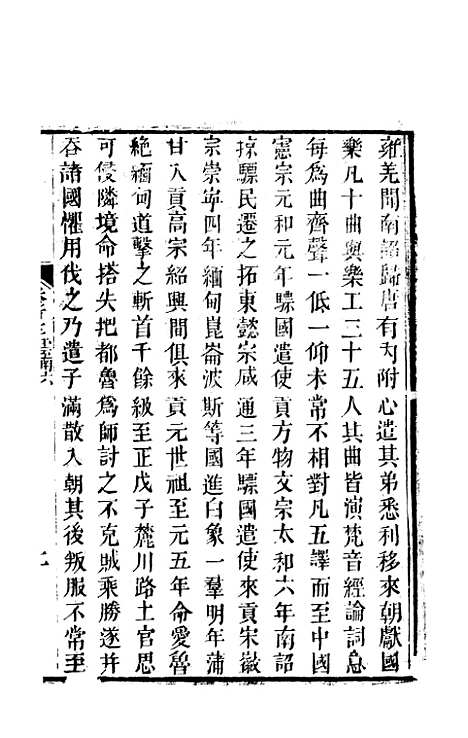 雍羌聞南詔歸唐有內附心遣其弟悉利移來朝獻國
樂凡十曲與樂工三十五人其曲皆演梵音經論詞意
每為曲齊聲一低一仰未常不相對凡五譯而至中國
憲宗元和元年驃國遣使貢方物文宗太和六年南詔
掠驃民遷之拓東懿宗咸通三年驃國遣使來貢宋徽
宗崇寕四年緬甸崑崙波斯等國進白象一羣明年蒲
甘入貢高宗紹興間俱來貢元世祖至元五年命愛魯
絶緬甸道擊之斬首千餘級至正戊子麓川路土官思
可侵隣境命搭失把都魯為師討之不克賊乘勝遂并
吞諸國懼用伐之乃遣子滿散入朝其後叛服不常至